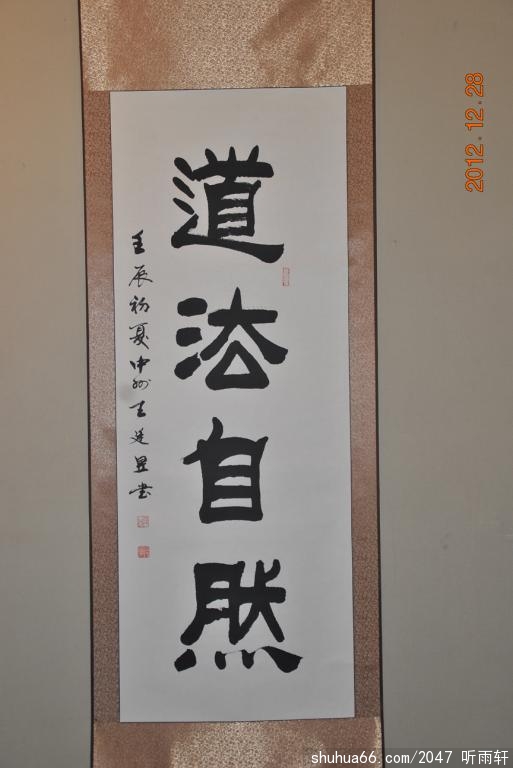 道法自然
壬辰初夏中州王廷昱书
2012.12.28
shuhua66.com/2047 听雨轩